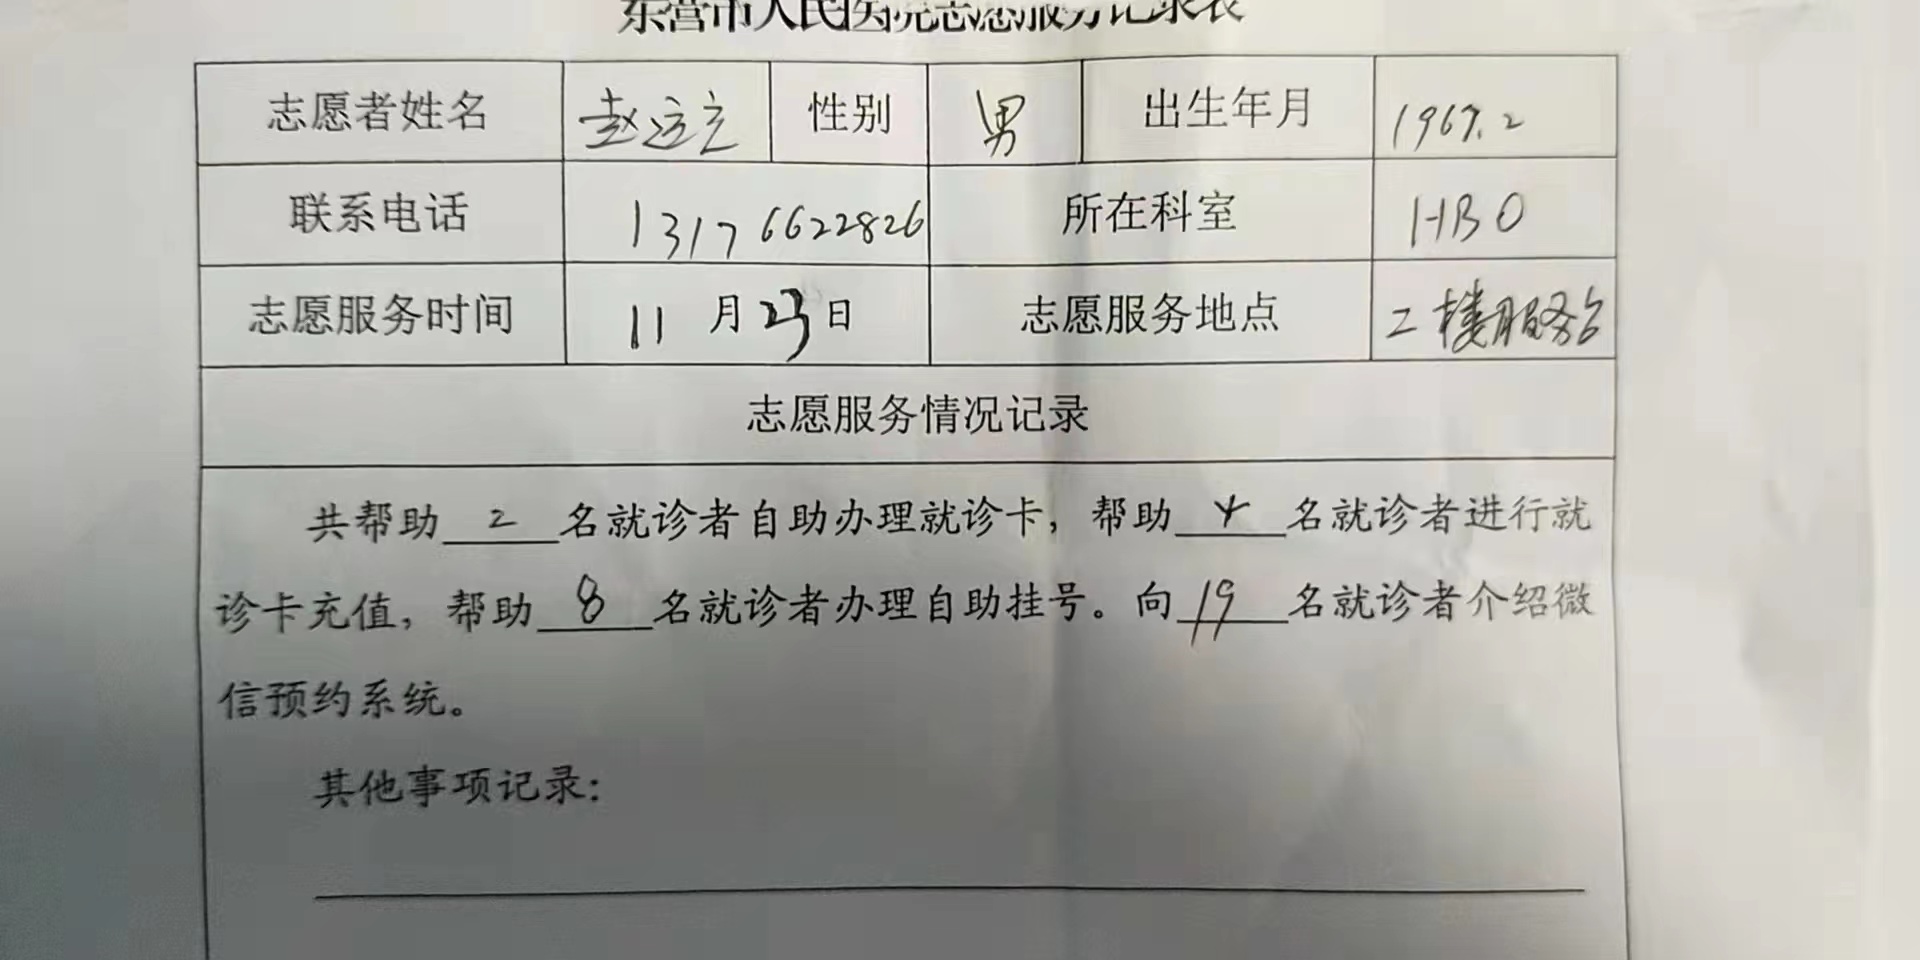 东营市人民医院志愿服务记录表
志愿者姓名 赵运立 性别 男 出生年月 1967.2
联系电话 13176622826 所在科室 HBO
志愿服务时间 11月23日 志愿服务地点 二楼服务台
志愿服务情况记录
共帮助 2 名就诊者自助办理就诊卡，帮助 4 名就诊者进行就
诊卡充值，帮助 8 名就诊者办理自助挂号。向 19 名就诊者介绍微
信预约系统。
其他事项记录：